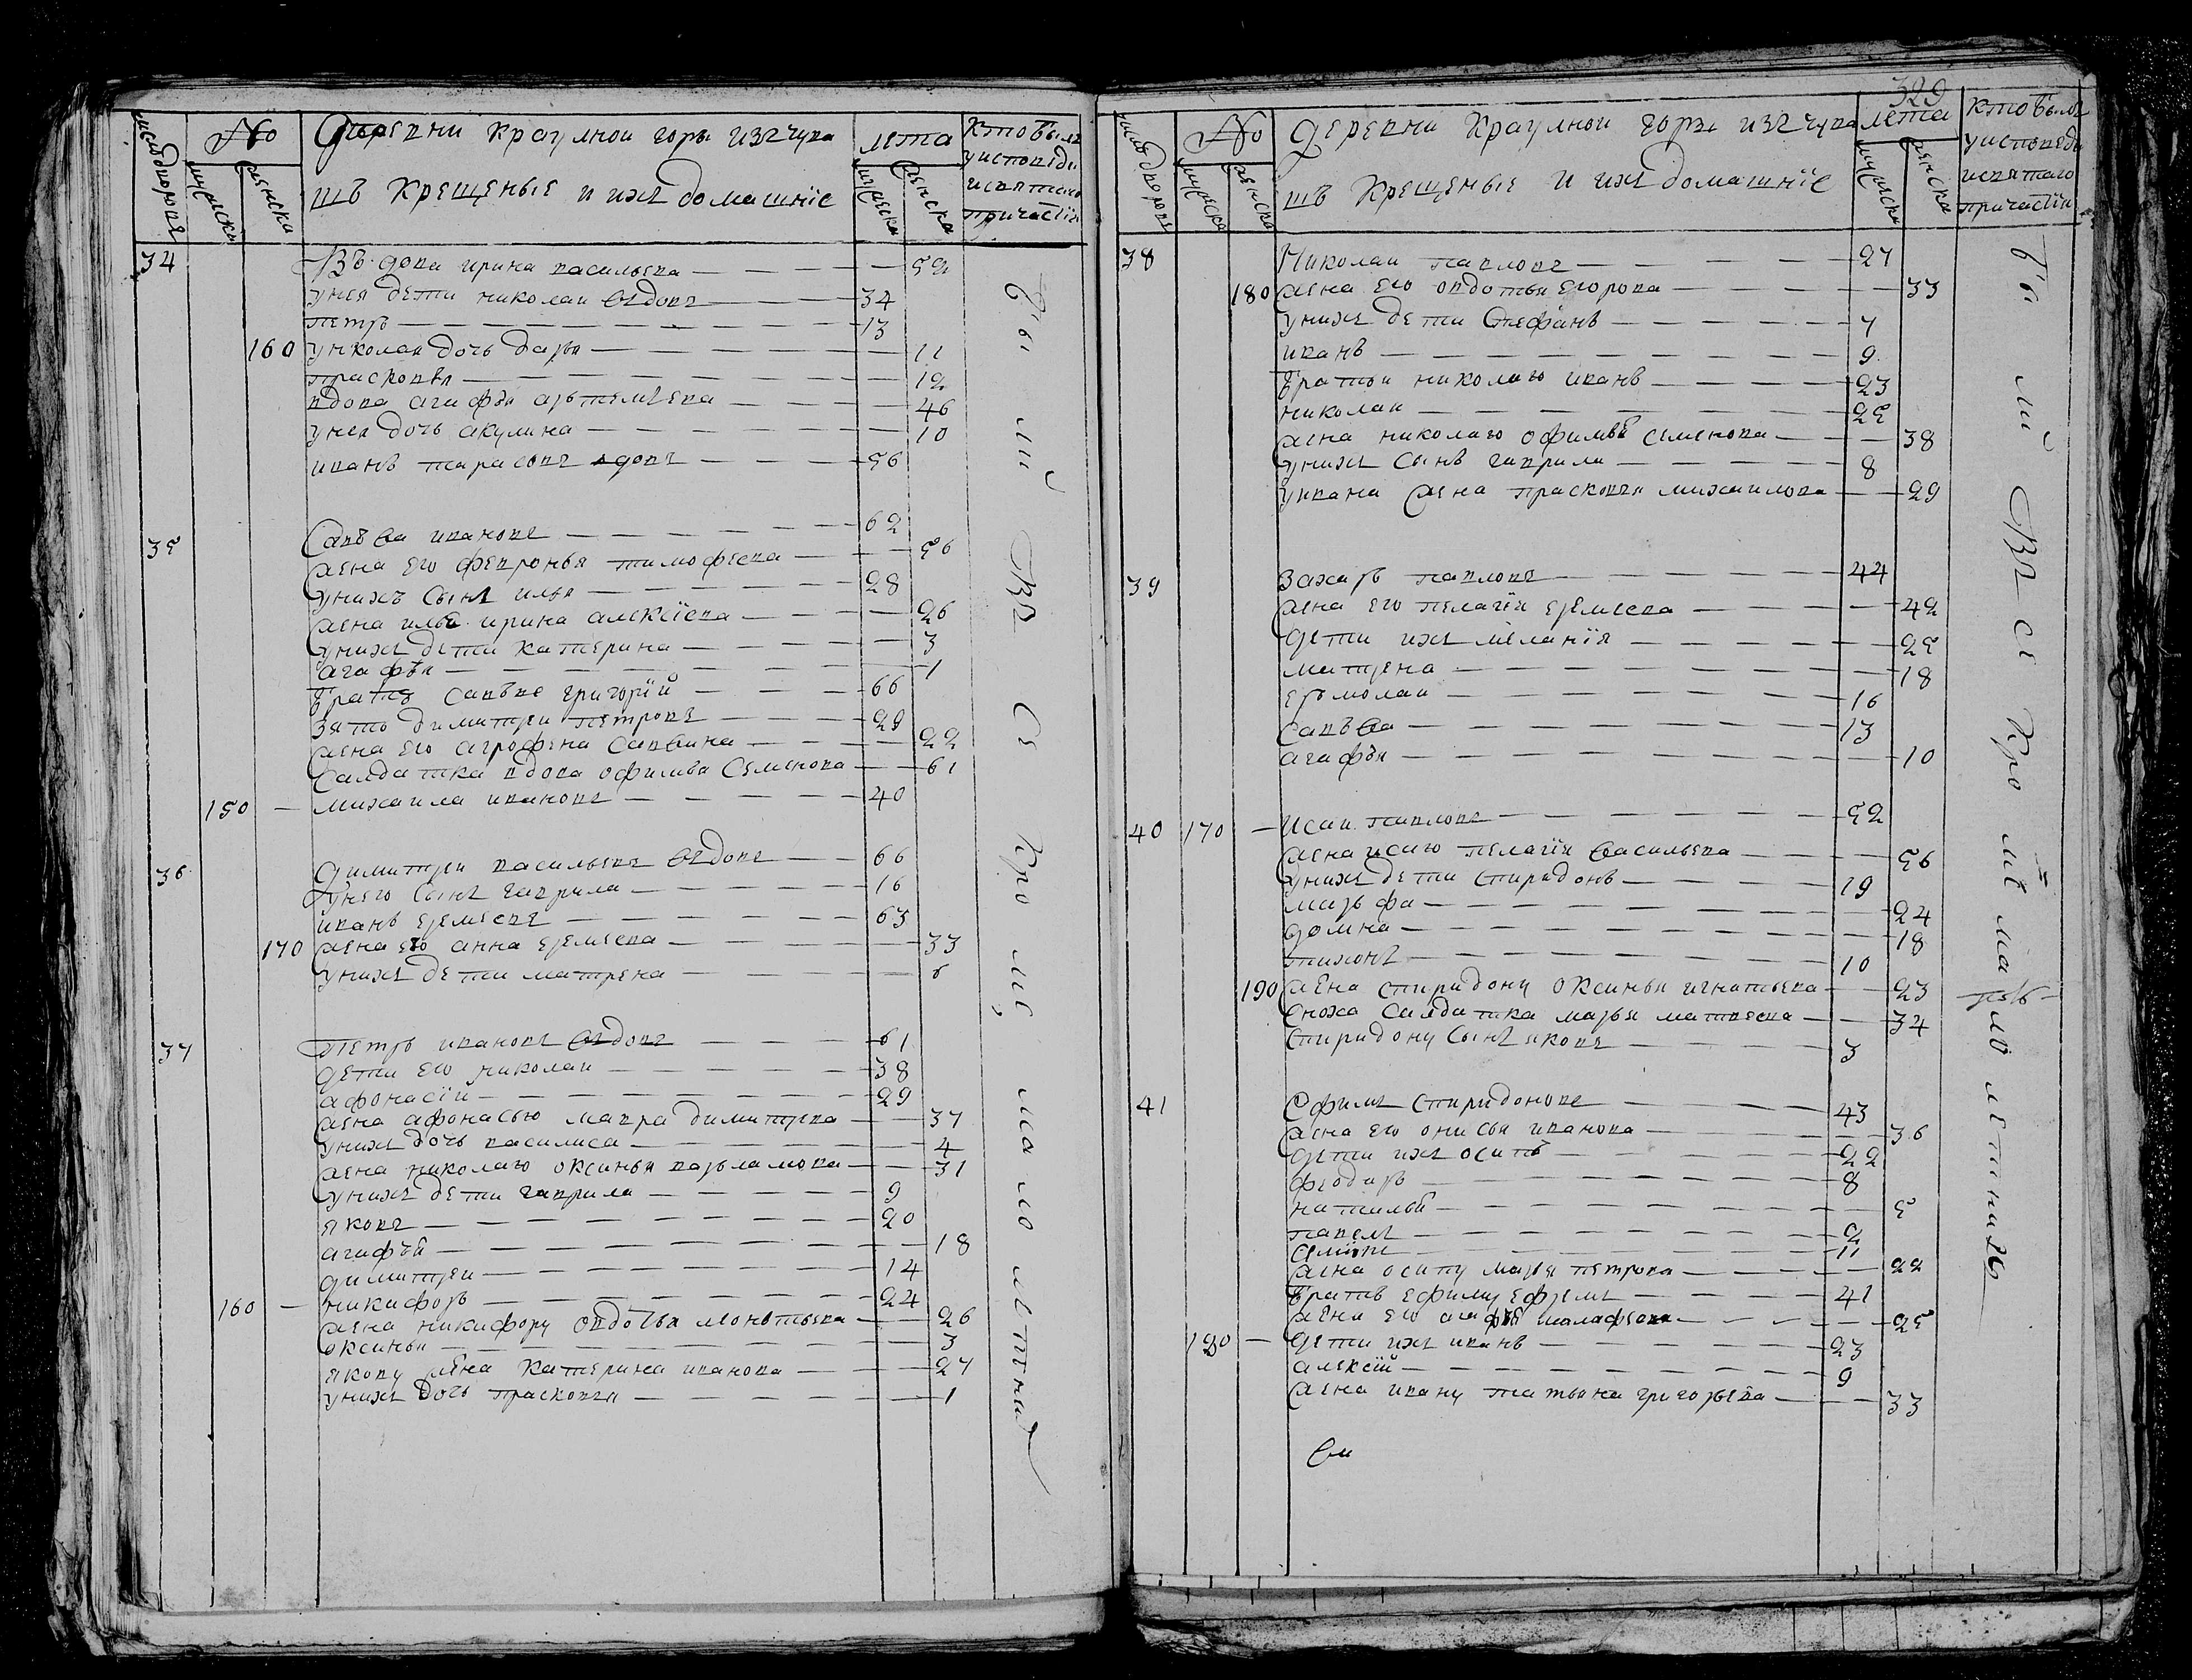 число дворовъ
№
мужеска
женска
Деревни Краулной горы изъ чува
шъ Крещеные и ихъ домашнїе
лета
мужеска
женска
кто былъ
у исповеди
и святаго
причастїя
34 Въдова ирина васильева 52
у нея дети николаи въдовъ 34
петръ 13
160 у николая дочь дарья 11
прасковья 12
вдова агафья артемьева 46
у нея дочь акулина 10
иванъ тарасовъ вдовъ 56
35 Савва ивановъ 62
жена его февронья тимофеева 56
у нихъ сынъ илья 28
жена илье ирина алексїева 26
у нихъ дети катерина 3
агафья 1
братъ савве григорїй 66
зять димитреи петровъ 29
жена его агрофена саввина 22
салдатка вдова офимья семенова 61
150 михаила ивановъ 40
36 Димитреи васильевъ въдовъ 66
у него сынъ гаврила 16
иванъ еремеевъ 63
170 жена его анна еремеева 33
у нихъ дети матрена 6
37 петръ ивановъ въдовъ 61
дети его николаи 38
афонасїй 29
жена афонасью мавра димитрева 37
у нихъ дочь василиса 4
жена николаю оксинья варъламова 31
у нихъ дети гаврила 9
яковъ 20
агафья 18
димитреи 14
160 никифоръ 24
жена никифору овдотья леонтьева 26
оксинья 3
якову жена катерина иванова 27
у нихъ дочь прасковья 1
Были Все Кроме малолетних
329
число дворовъ
№
мужеска
женска
Деревни Краулнои горы изъ чува
шъ Крещеные и ихъ домашнїе
лета
мужеска
женска
кто былъ
у исповеди
и святаго
причастїя
38 Николаи павловъ 27
180 жена его овдотья егорова 33
у нихъ дети стефанъ 7
иванъ 9
братья николаю иванъ 23
николаи 25
жена николаю офимья семенова 38
у нихъ сынъ гаврила 8
у ивана жена прасковья михаилова 29
39 Захаръ павловъ 44
жена его пелагїя еремеева 42
дети ихъ меланїя 25
матрена 18
ермолаи 16
савъва 13
агафья 10
40 170 Исаи павловъ 52
жена исаю пелагїя васильева 56
у нихъ дети спиридонъ 19
марфа 24
домна 18
тихонъ 10
190 жена спиридону оксинья игнатьева 23
сноха салдатка марья матвеева 34
спиридону сынъ яковъ 3
41 Офимъ спиридоновъ 43
жена его онисья иванова 36
дети ихъ осипъ 22
феодоръ 8
наталья 5
павелъ 2
11
жена осипу марья петрова 22
братъ ефиму ефремъ 41
жена его агафья 25
180 дети ихъ иванъ 23
алексїй 9
жена ивану татьяна григорьева 33
Были Все Кроме малолетнихъ